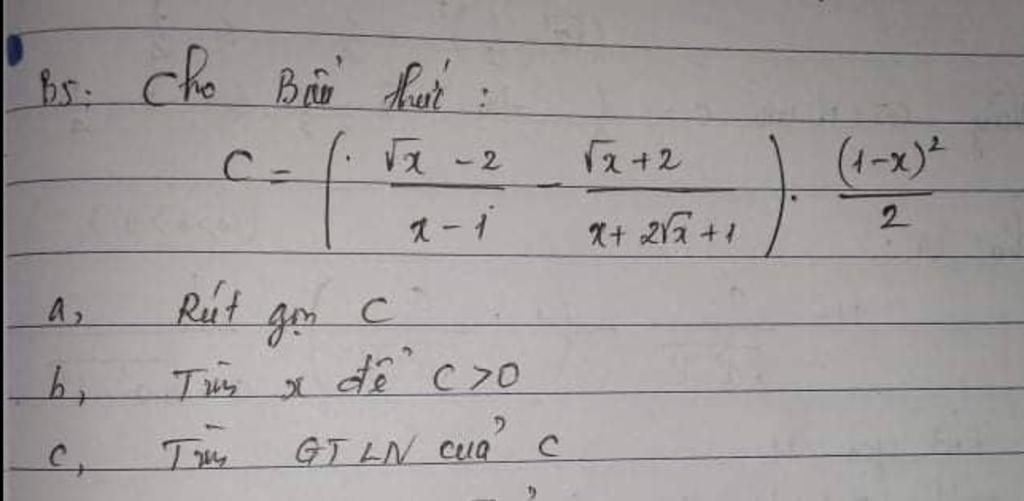 B5: Cho Biểu thức :
C = ( (√x - 2)/(x - 1) - (√x + 2)/(x + 2√x + 1) ) . (1-x)²/2
a, Rút gọn C
b, Tìm x để C > 0
c, Tìm GTLN của C